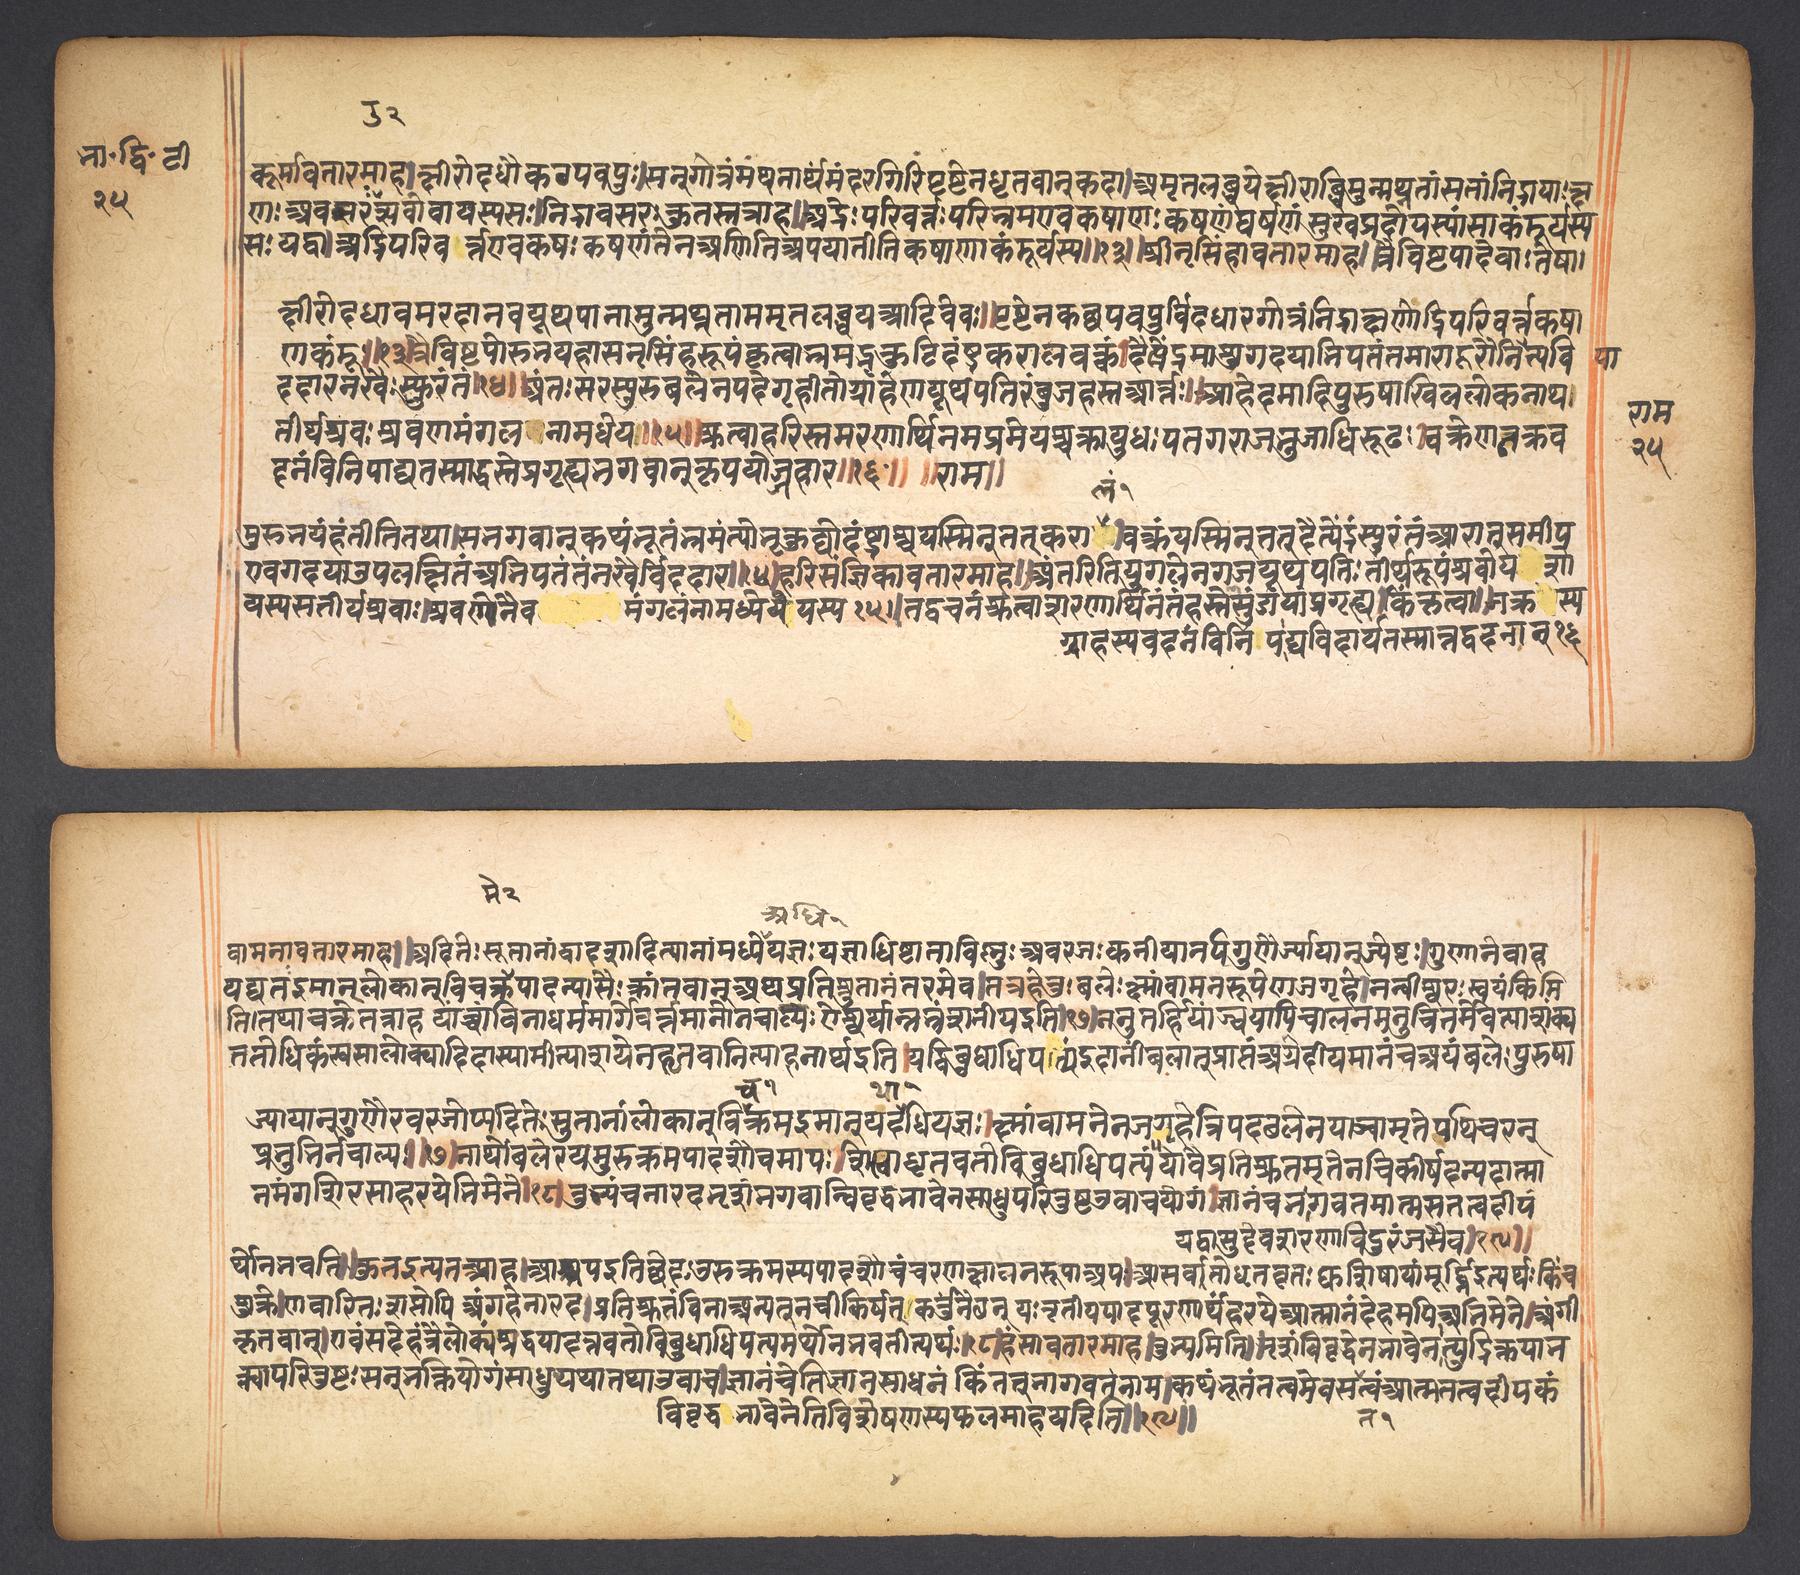 तु २
भा॰द्वि॰टी
२५
कूर्मावतारमाह॥क्षीरोदधौकछपवपुःसनगोत्रंमंथनार्थंमंदरगिरिंपृष्टेनधृतवान्कदा॥अमृतलब्धयेक्षीराब्धिमुन्मथ्नतांसतांनिद्रायाःक्ष
णःअवसरःअवीवायस्यसः॥निद्रावसरःकुतस्तत्राह॥अद्रेःपरिवर्त्तःपरिभ्रमणवकषाणःकषणंघर्षणंसुखप्रदोयस्यांसाकंडूर्यस्य
सःयद्वा॥अद्रिपरिवर्त्तएवकषःकषणंतेनअणितिअपयातीतिकषाणाकंडूर्यस्य॥१३॥श्रीनृसिंहावतारमाह॥त्रैविष्टपादेवाःतेषां।
क्षीरोदधावमरदानवयूथपानामुन्मथ्नताममृतलब्धयआदिदेवः॥पृष्टेनकछपवपुर्विदधारगोत्रंनिद्राक्षणोद्रिपरिवर्त्तकषा
णकंडूः॥१३॥त्रैविष्टपोरुभयहासनृसिंहरूपंकृत्वाभ्रमद्भ्रुकुटिदंष्ट्रकरालवक्त्रं॥दैत्येंद्रमाशुगदयाभिपतंतमारादूरौनित्यवि पा
ददारनखैःस्फुरंतं॥१४॥अंतःसरस्युरुबलेनपदेगृहीतोग्राहेणयूथपतिरंबुजहस्तआर्त्तः॥आहेदमादिपुरुषाखिललोकनाथ।
राम
तीर्थश्रवःश्रवणमंगलनामधेय॥१५॥श्रुत्वाहरिस्तमरणार्थिनमप्रमेयश्चक्रायुधःपतगराजभुजाधिरूढः॥चक्रेणनक्रव
२५
दनंविनिपाट्यतस्माद्धस्तेप्रगृह्यभगवान्कृपयोज्जहार॥१६॥ ॥राम॥
लं १
पुरुभयंहंतीतितथा॥सभगवान्कथंभूतंभ्रमंत्योभ्रुकुट्योदंष्ट्राश्चयस्मिन्तत्करावक्त्रंयस्मिन्तत्दैत्येंद्रंस्फुरंतंआरात्समीप
एवगदयाउपलक्षितंअभिपतंतंनखैर्विददार॥१४॥हरिसंज्ञिकावतारमाह॥अंतरितियुगलेनगजयूथपतिःतीर्थरूपंश्रवोयशो
यस्यसतीर्थश्रवाः॥श्रवणेनैवमंगलंनामधेयंयस्य१५॥तद्वचनंश्रुत्वाशरणार्थिनंतंहस्तेसुंडायांप्रगृह्य।किंकृत्वा॥नक्रस्य
ग्राहस्यवदनंविनिपाट्यविदार्यतस्मान्नद्वदनात्१६
मे २
अधि १
वामनावतारमाह॥अदितेःसूतानांद्वादशादित्यानांमध्येयज्ञःयज्ञाधिष्टाताविष्णुःअवरजःकनीयानपिगुणैर्ज्यायान्ज्येष्टः।गुणानेवाह
यद्यतःइमान्लोकान्विचक्रमेपादन्यासैःक्रांतवान्अथप्रतिश्रुतानंतरमेव॥तत्रहेतुःबलेःक्ष्मांवामनरूपेणजगृहे॥नन्वीश्वरःस्वयंकिमि
तितथाचक्रेतत्राहयाच्ञांविनाधर्ममार्गेवर्त्तमानोनचाल्यःऐश्वर्यान्नभ्रंशनीयइति॥१७॥ननुतर्हियाञ्चयापिचालनमनुचितमेवेत्याशंक्य
ततोधिकंस्वसालोक्यादिदास्यामीत्याशयेनहृतवानित्याहनार्थइति॥यद्विबुधाधिपत्यंइदानींबलात्प्राप्तंअग्रेदीयमानंचअयंबलेःपुरुषा
च १ था १
ज्यायान्गुणैरवरजोप्यदितेःसुतानांलोकान्विचक्रमइमान्यदथाधियज्ञः॥क्ष्मांवामनेनजगृहेत्रिपदछलेनयाञ्चामृतेपथिचरन्
प्रभुभिर्नचाल्यः॥१७॥नार्थोबलेरयमुरुक्रमपादशौचमापःशिखाधृतवतोविबुधाधिपत्यं॥योवैप्रतिश्रुतमृतेनचिकीर्षदन्यदात्मा
नमंगशिरसाहरयेभिमेने॥१८॥तुभ्यंचनारदभृशंभगवान्विवृद्धभावेनसाधुपरितुष्टउवाचयोगं॥ज्ञानंचभागवतमात्मसतत्वदीपं
यद्वासुदेवशरणाविदुरंजसैव॥१९॥
र्थोनभवति॥कुतइत्यतआह॥आपइतिछेदःउरुक्रमस्यपादशौचंचरणक्षालनरूपाअपःआसर्वतोधृतवतःकशिषायांमूर्द्ध्निइत्यर्थःकिंच
शुक्रेणवारितःशप्तोपिअंगहेनारदप्रतिश्रुतंविनाअन्यत्नचीकिर्षत्कर्तुंनैछन्यःतृतीयपादपूरणार्थंहरयेआत्मानंदेहमपिअभिमेने॥अंगी
कृतवान्॥एवंसदेहंत्रैलोक्यंप्रदयादत्तवतोविबुधाधिपत्यमर्थोनभवतीत्यर्थः॥१८॥हंसावतारमाह॥तुभ्यमिति॥भृशंविवृद्धेनभावेनत्युद्रिक्तयाभ
क्त्यापरितुष्टःसन्भक्तियोगंसाधुयथातथाउवाच॥ज्ञानंचेतिज्ञानसाधनंकिंतत्भागवतंनाम॥कथंभूतंतत्वमेवसत्वंआत्मतत्वदीपकं
विवृद्धभावेनेतिविशेषणस्यफलमाहयदिति॥१९॥ त १